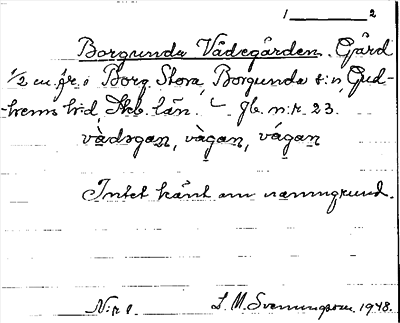 1 2
Borgunda Vådegården. Gård
1/2 m. fr. i Borg. Stora, Borgunda s:n, Gud-
-hems h:d, Skb. län. Jb. n:r 23.
vàdəgan, vàgan, vágan
Intet känt om namngrund.
N:r 1. L. M. Svenungsson 1948.